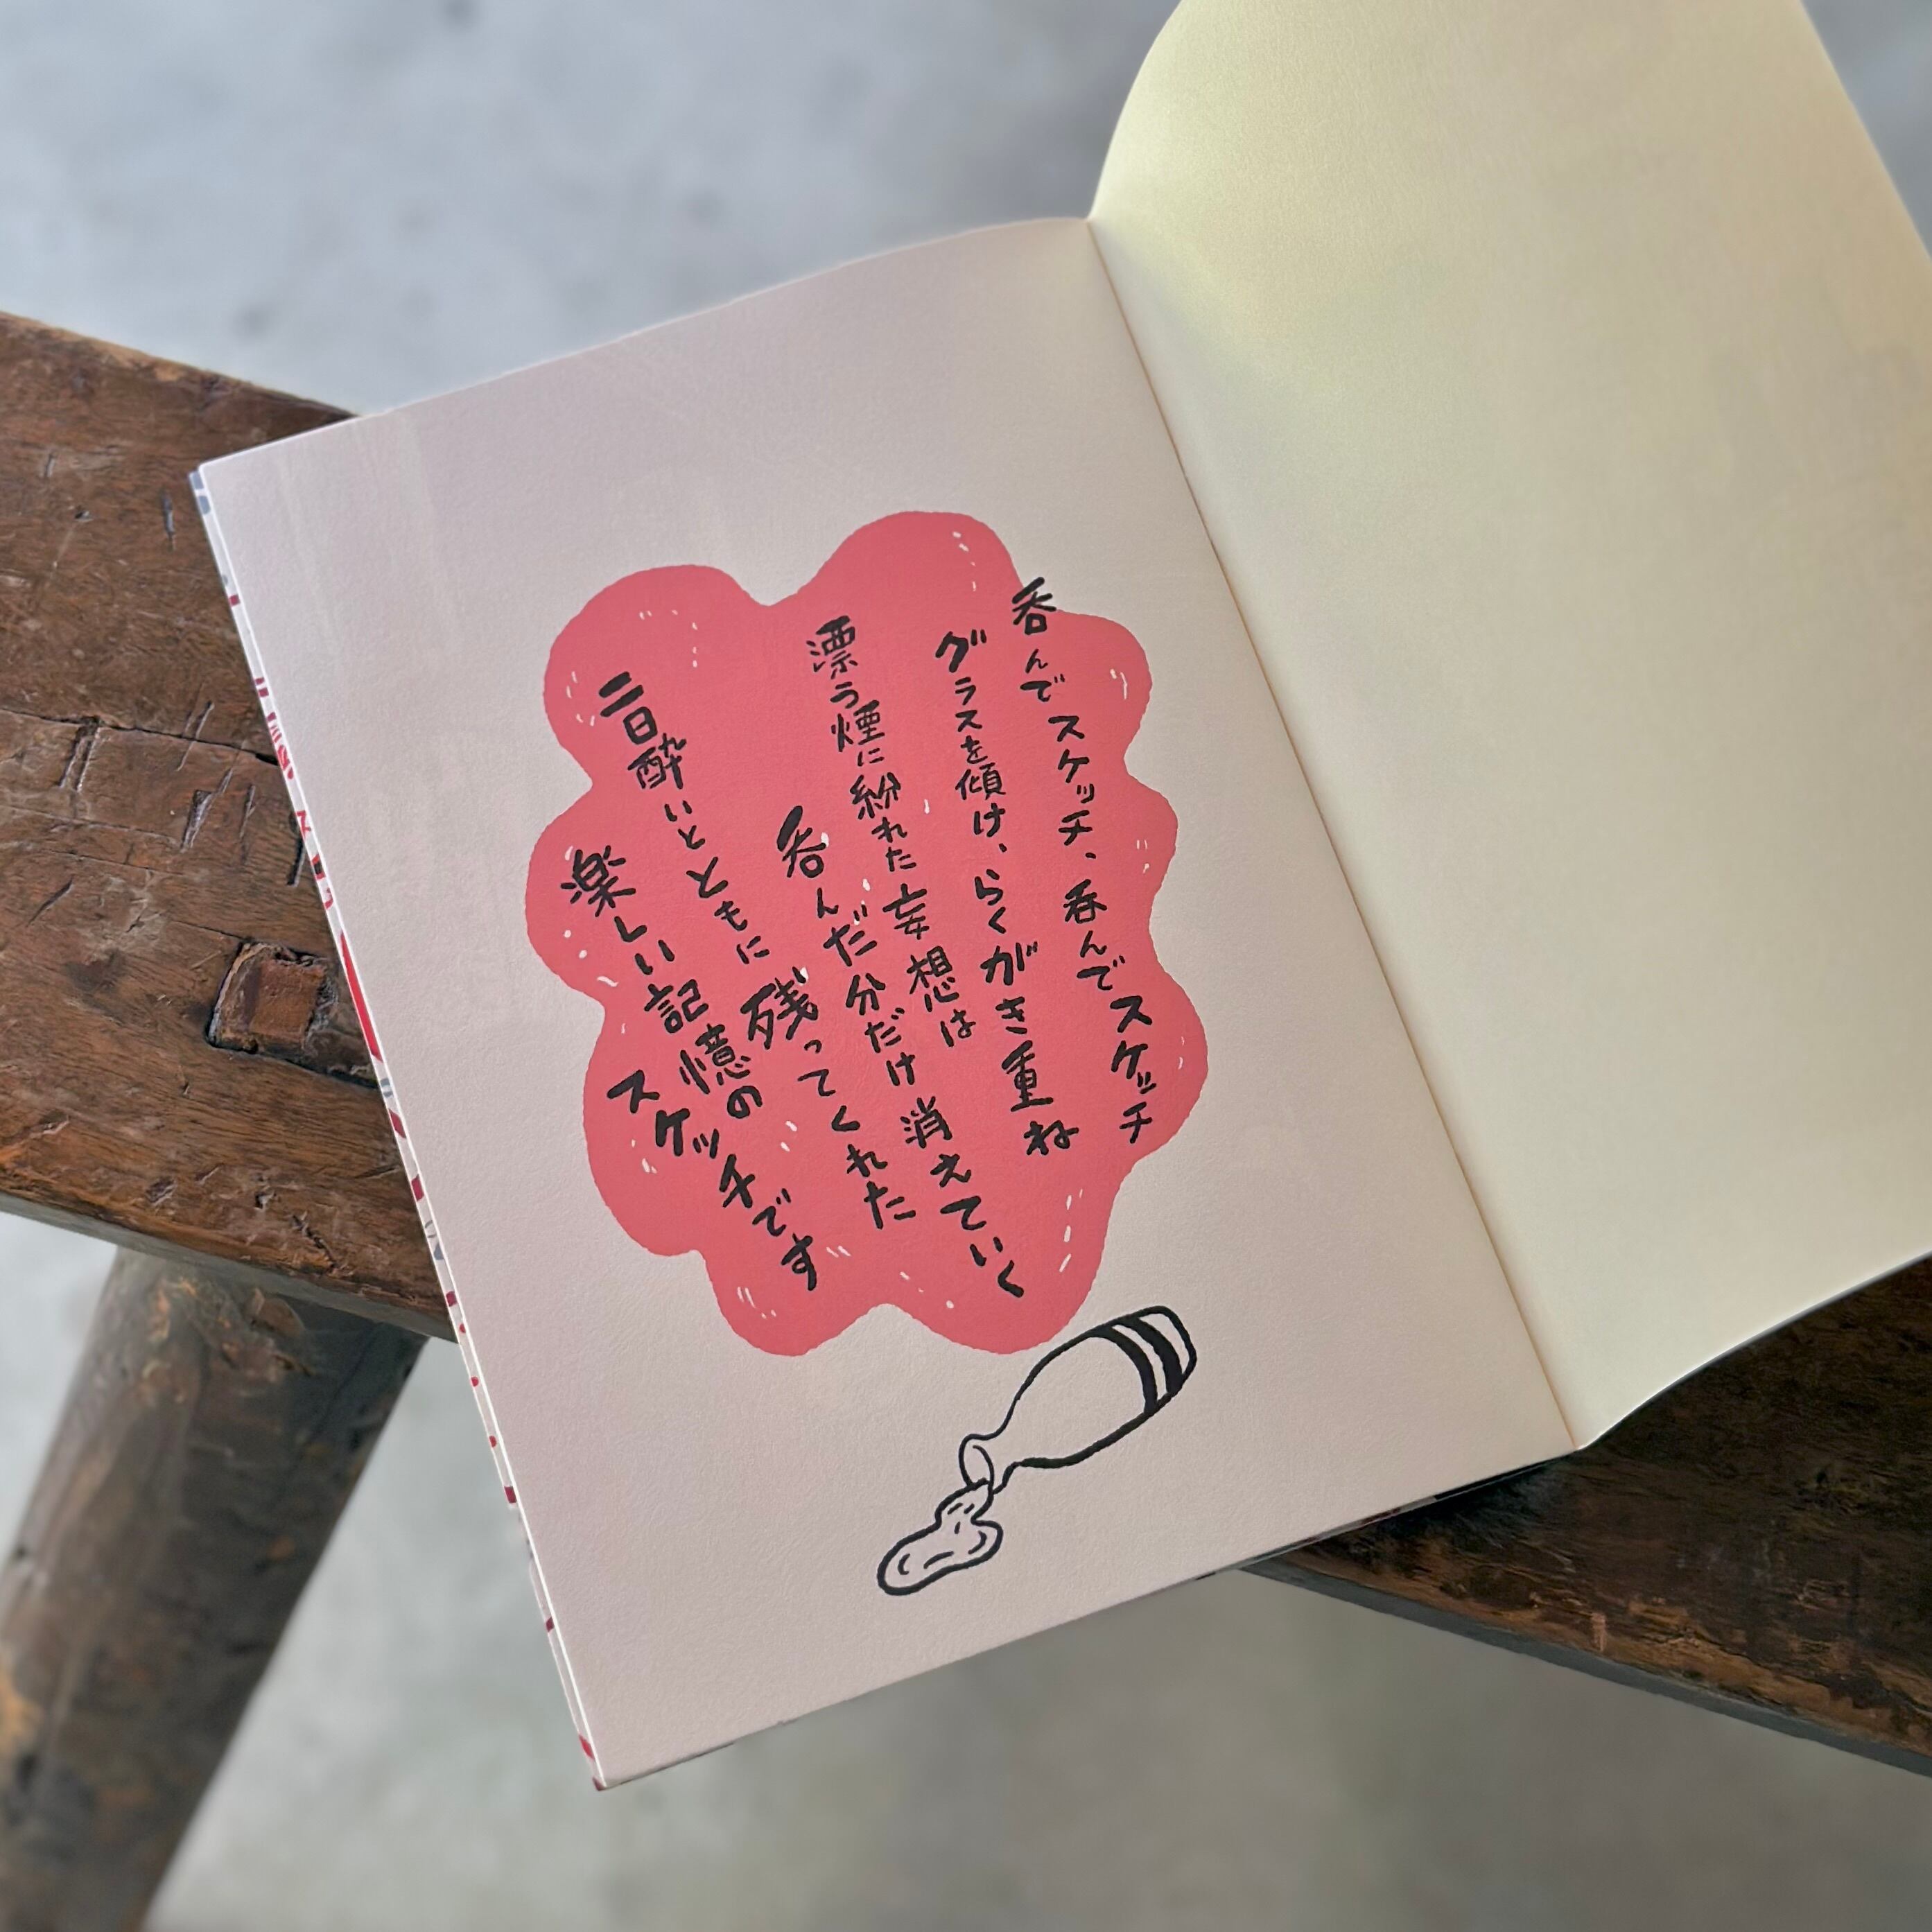 呑んでスケッチ、呑んでスケッチ
グラスを傾け、らくがき重ね
漂う煙に紛れた妄想は
呑んだ分だけ消えていく
二日酔いとともに残ってくれた
楽しい記憶の
スケッチです